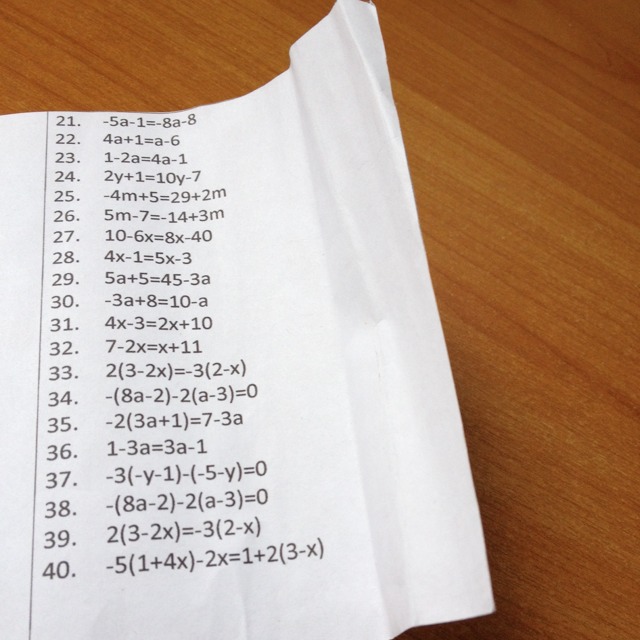 21. -5a-1=-8a-8
22. 4a+1=a-6
23. 1-2a=4a-1
24. 2y+1=10y-7
25. -4m+5=29+2m
26. 5m-7=-14+3m
27. 10-6x=8x-40
28. 4x-1=5x-3
29. 5a+5=45-3a
30. -3a+8=10-a
31. 4x-3=2x+10
32. 7-2x=x+11
33. 2(3-2x)=-3(2-x)
34. -(8a-2)-2(a-3)=0
35. -2(3a+1)=7-3a
36. 1-3a=3a-1
37. -3(-y-1)-(-5-y)=0
38. -(8a-2)-2(a-3)=0
39. 2(3-2x)=-3(2-x)
40. -5(1+4x)-2x=1+2(3-x)